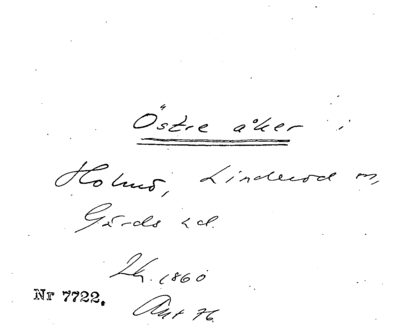 Östre åker i
Holmö, Linderöd sn,
Gärds hd.
Lh. 1860
Nr 7722.
Akt 76